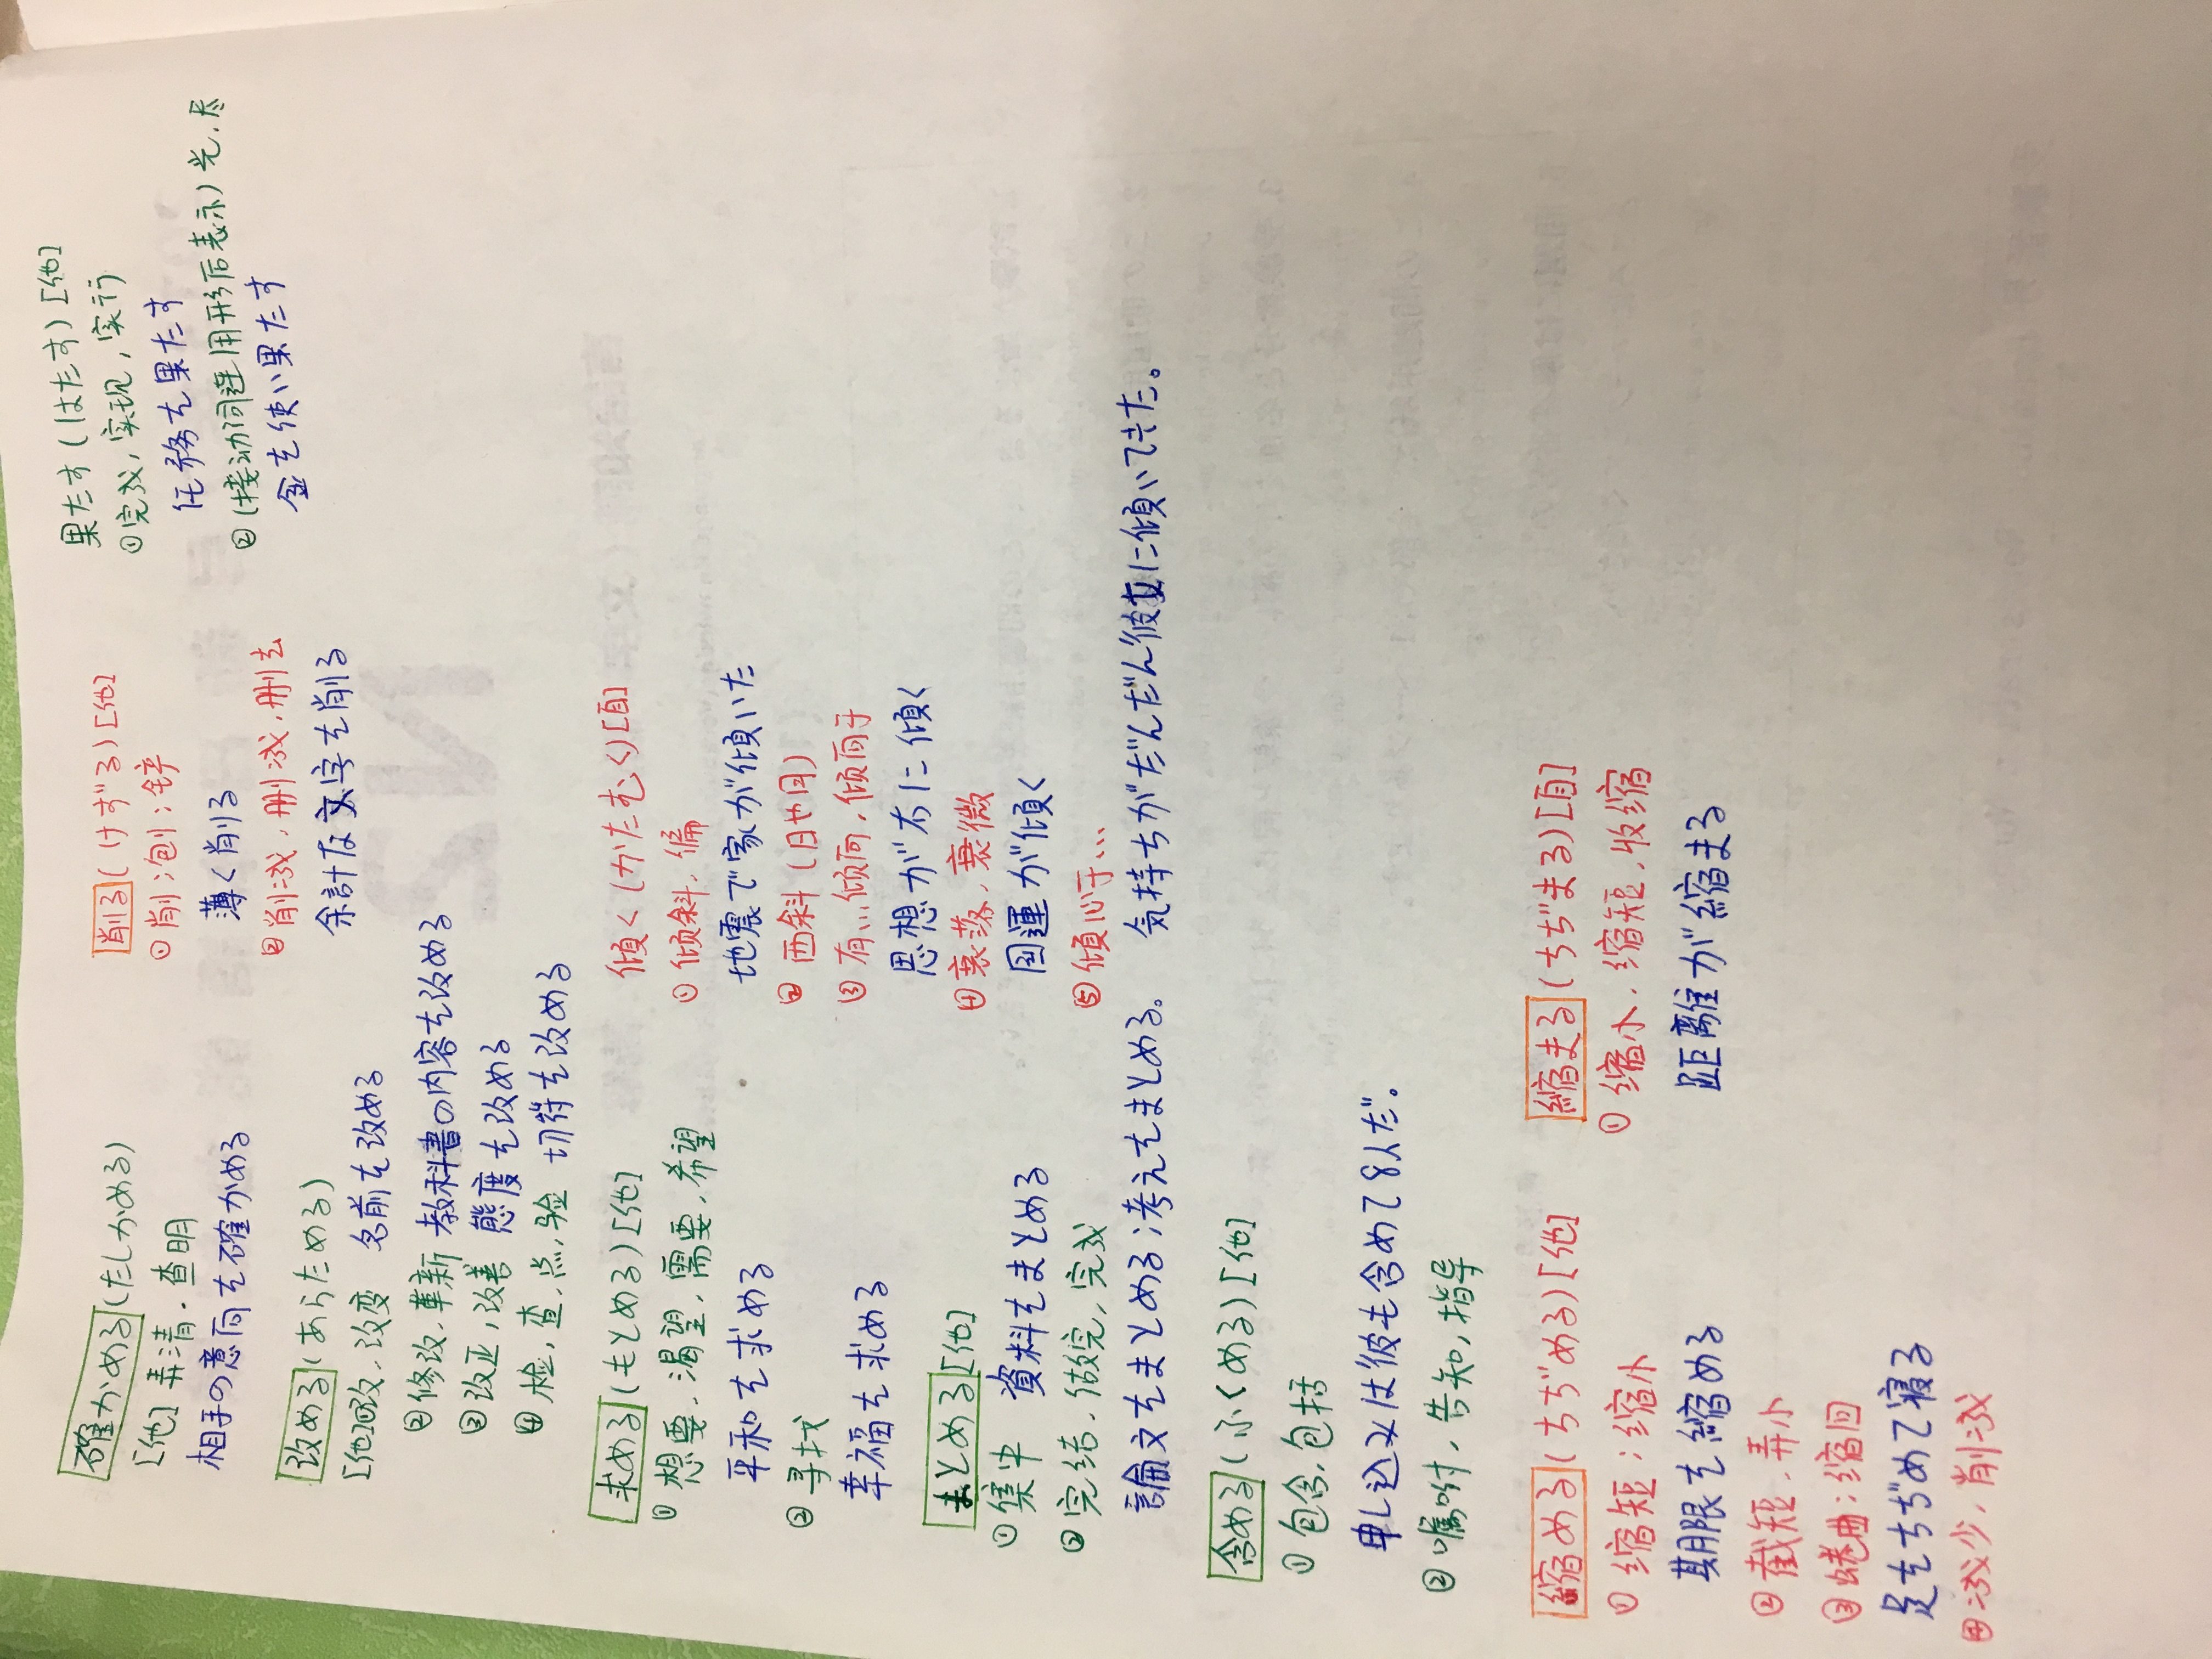 確かめる(たしかめる)
[他]弄清.查明
相手の意向を確かめる
改める(あらためる)
[他]①改.改变 名前を改める
②修改.革新 教科書の内容を改める
③改正,改善 態度を改める
④检,查,点,验 切符を改める
求める(もとめる)[他]
①想要.渴望,需要.希望
平和を求める
②寻找
幸福を求める
まとめる[他]
①集中 資料をまとめる
②完结.做完,完成
論文をまとめる;考えをまとめる。
含める(ふくめる)[他]
①包含,包括
申し込みは彼も含めて8人だ。
②嘱咐,告知,指导
縮める(ちぢめる)[他]
①缩短;缩小
期限を縮める
②截短.弄小
③蜷曲;缩回
足をちぢめて寝る
④减少,削减
削る(けずる)[他]
①削;刨;铲
薄く削る
②削减.删减.删去
余計な文字を削る
傾く(かたむく)[自]
①倾斜.偏
地震で家が傾いた
②西斜(日や月)
③有..倾向.倾向于
思想が右に傾く
④衰落.衰微
国運が傾く
⑤傾心于...
気持ちがだんだん彼女に傾いてきた。
縮まる(ちぢまる)[自]
①缩小.缩短.收缩
距離が縮まる
果たす(はたす)[他]
①完成,实现,实行
任務を果たす
②(接动词連用形后表示)光.尽
金を使い果たす